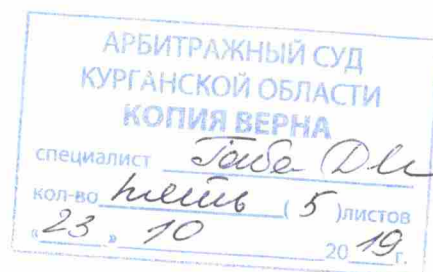 АРБИТРАЖНЫЙ СУД
КУРГАНСКОЙ ОБЛАСТИ
КОПИЯ ВЕРНА
специалист
кол-во пять ( 5 )листов
«23 » 10 2019г.